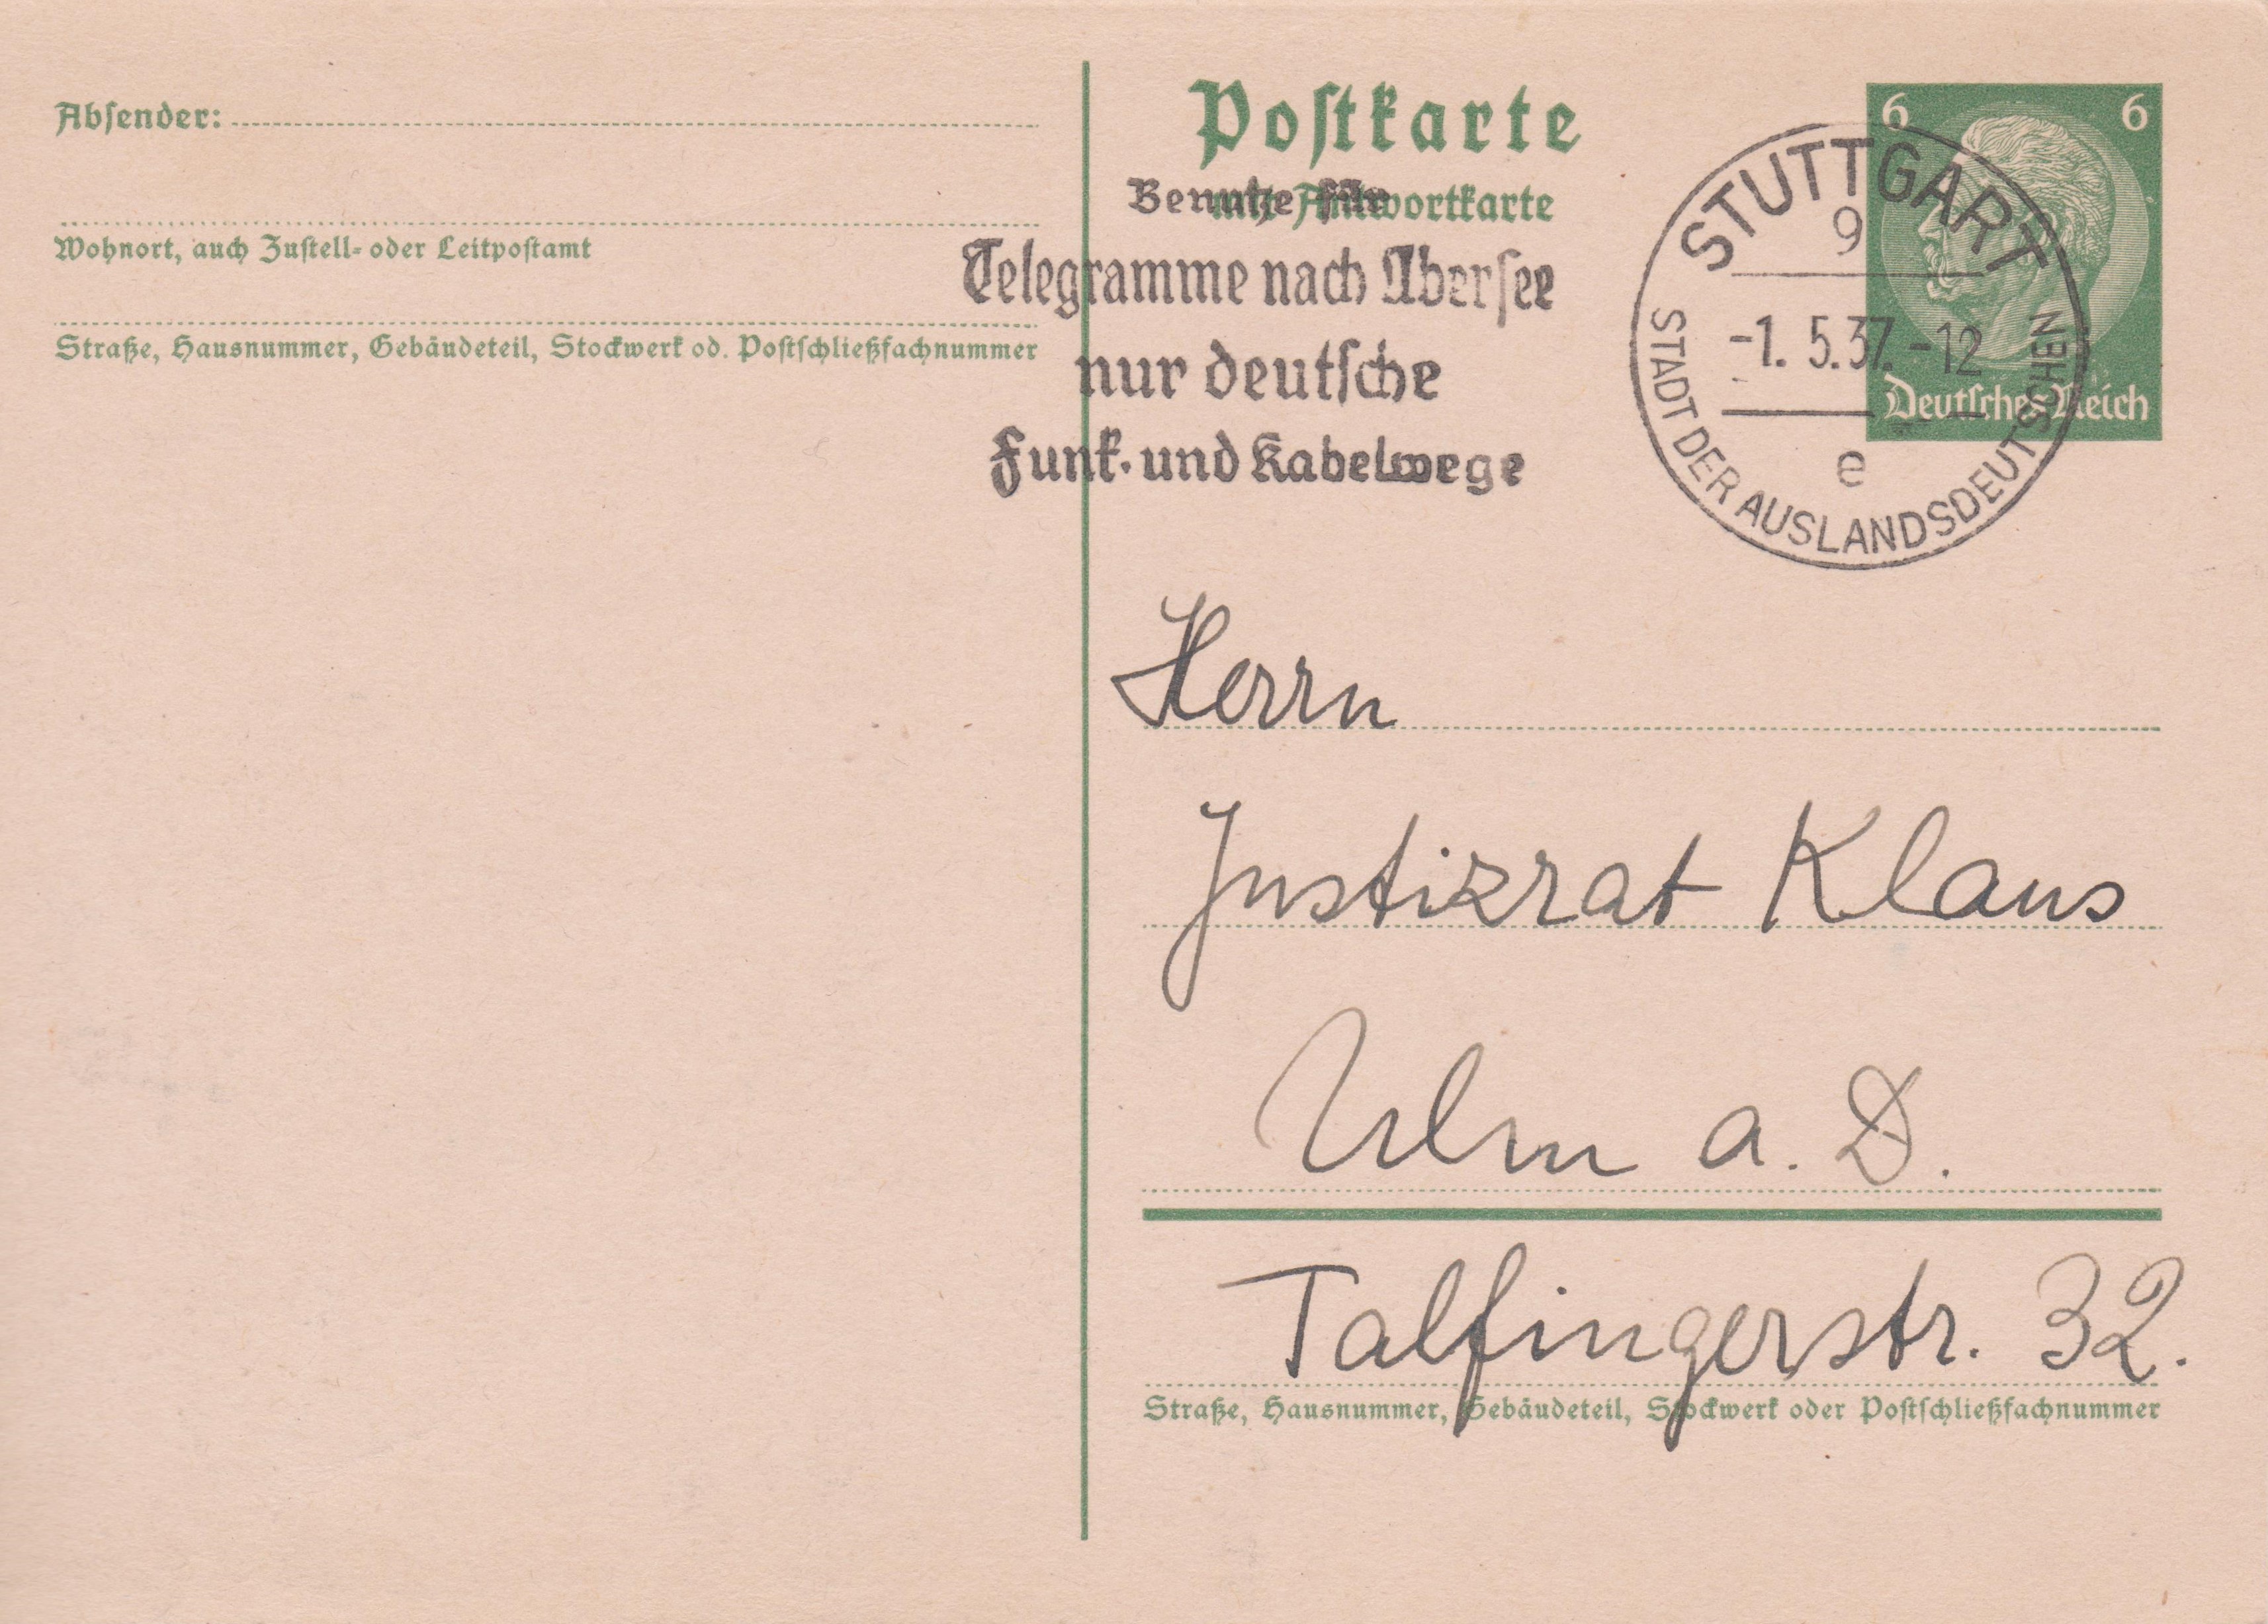 Absender:
Wohnort, auch Zustell- oder Leitpostamt
Straße, Hausnummer, Gebäudeteil, Stockwerk od. Postschließfachnummer
Postkarte
mit Antwortkarte
Benutze für
Telegramme nach Übersee
nur deutsche
Funk- und Kabelwege
6 6
Deutsches Reich
STUTTGART
9
-1. 5.37.-12
e
STADT DER AUSLANDSDEUTSCHEN
Herrn
Justizrat Klaus
Ulm a. D.
Talfingerstr. 32.
Straße, Hausnummer, Gebäudeteil, Stockwerk oder Postschließfachnummer